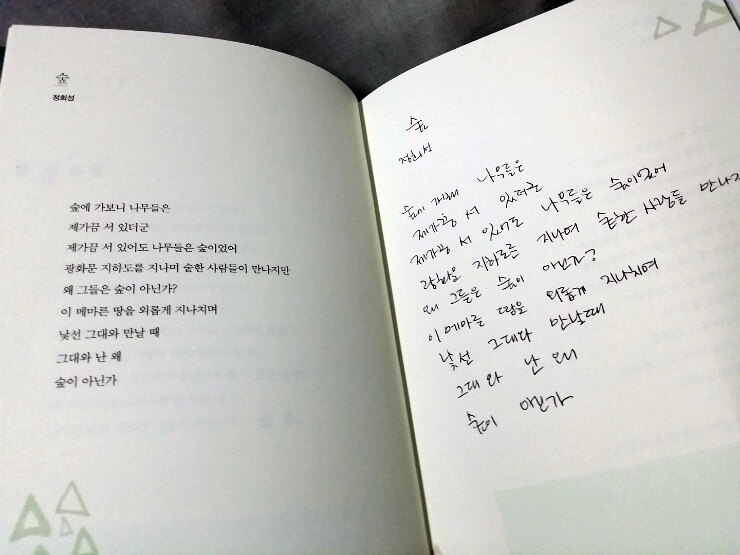 숲
정희성
숲에 가보니 나무들은
제가끔 서 있더군
제가끔 서 있어도 나무들은 숲이었어
광화문 지하도를 지나며 숱한 사람들이 만나지만
왜 그들은 숲이 아닌가?
이 메마른 땅을 외롭게 지나치며
낯선 그대와 만날 때
그대와 난 왜
숲이 아닌가
숲
정희성
나무들은
제가끔 서 있더군
제가끔 서 있어도 나무들은 숲이었어
지나며 숱한 사람들 만나지
왜 그들은 숲이 아닌가?
이 메마른 땅을 외롭게 지나치며
낯선 그대와 만날때
그대와 난 왜
숲이 아닌가